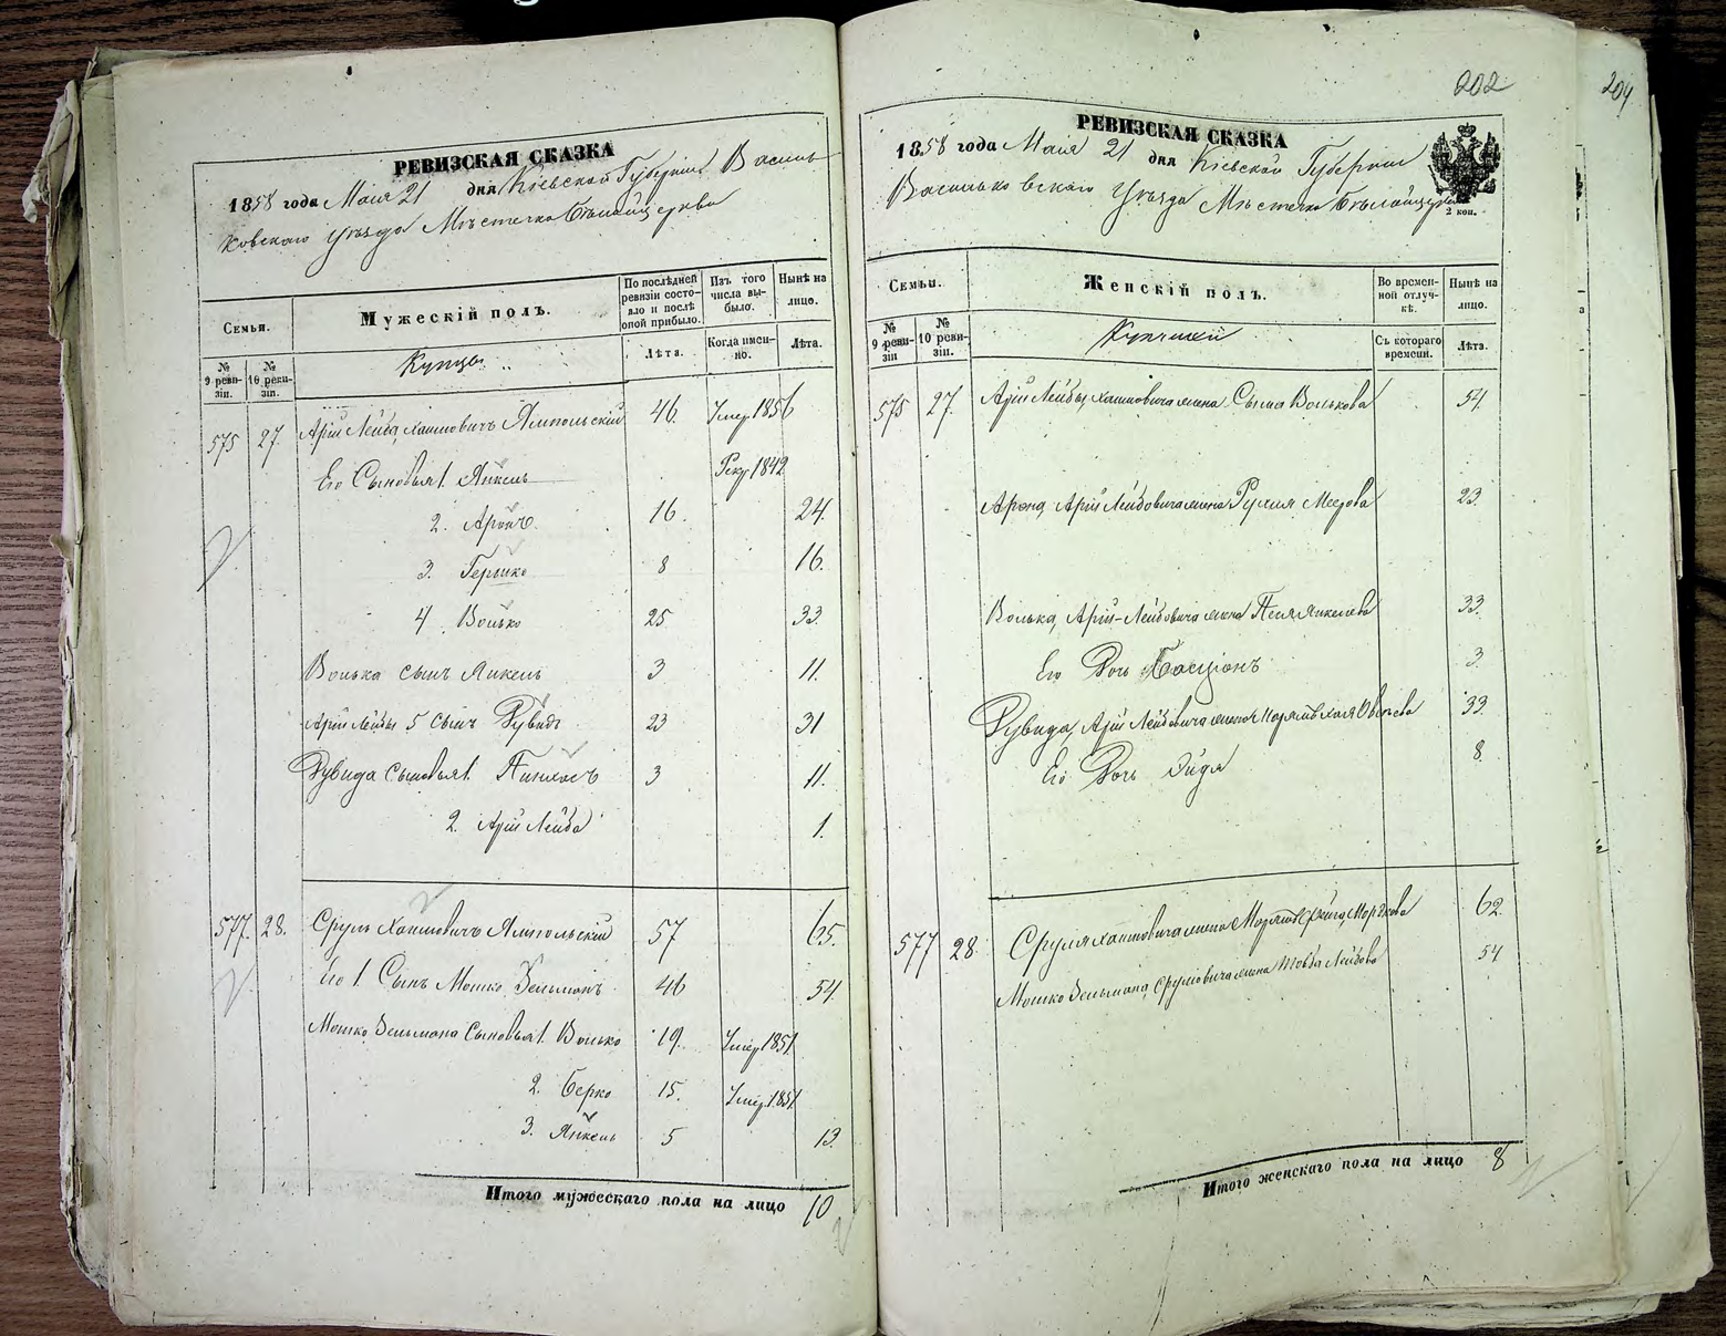 202
204
РЕВИЗСКАЯ СКАЗКА
1858 года Мая 21 дня Кіевской Губерніи Василь-
ковскаго Уѣзда Мѣстечка Бѣлойцеркви
Семьи.
Мужескій полъ.
По послѣдней ревизіи состояло и послѣ оной прибыло.
Изъ того числа выбыло.
Нынѣ на лицо.
№ 9 ревизіи.
№ 10 ревизіи.
Купцы
Лѣта.
Когда именно.
Лѣта.
575 27. Арій Лейба Хаимовичъ Ямпольскій 46. Умер 1856
Его Сыновья 1. Янкель Рекр 1842
2. Аронъ. 16. 24.
3. Гершко 8 16.
4. Волько 25 33.
Волька сынъ Янкель 3 11.
Арій Лейбы 5 сынъ Рувидъ 23 31
Рувида сыновья 1. Пинхосъ 3 11.
2. Арій Лейба 1.
577. 28. Сруль Хаимовичъ Ямпольскій 57 65.
Его 1. Сынъ Мошко Зельманъ 46 54.
Мошко Зельмана Сыновья 1. Волько 19. Умер 1851
2. Берко 15. Умер. 1851
3. Янкель 5 13.
Итого мужескаго пола на лицо 10
РЕВИЗСКАЯ СКАЗКА
1858 года Мая 21 дня Кіевской Губерніи
Васильковскаго Уѣзда Мѣстечка Бѣлойцеркви
2 коп.
Семьи.
Женскій полъ.
Во временной отлучкѣ.
Нынѣ на лицо.
№ 9 ревизіи
№ 10 ревизіи.
Съ котораго времени.
Лѣта.
575 27. Арій Лейбы Хаимовича жена Сыма Волькова 54.
Арона, Арій Лейбовича жена Рухля Меерова 23.
Волька, Арій-Лейбовича жена Песя Янкелева 33.
Его Дочь 3.
Рувида, Арій Лейбовича жена 33.
Его Дочь 8
577 28. Сруля Хаимовича жена 62.
Мошко Зельмана Срулевича жена Товба Лейбова 54
Итого женскаго пола на лицо 8